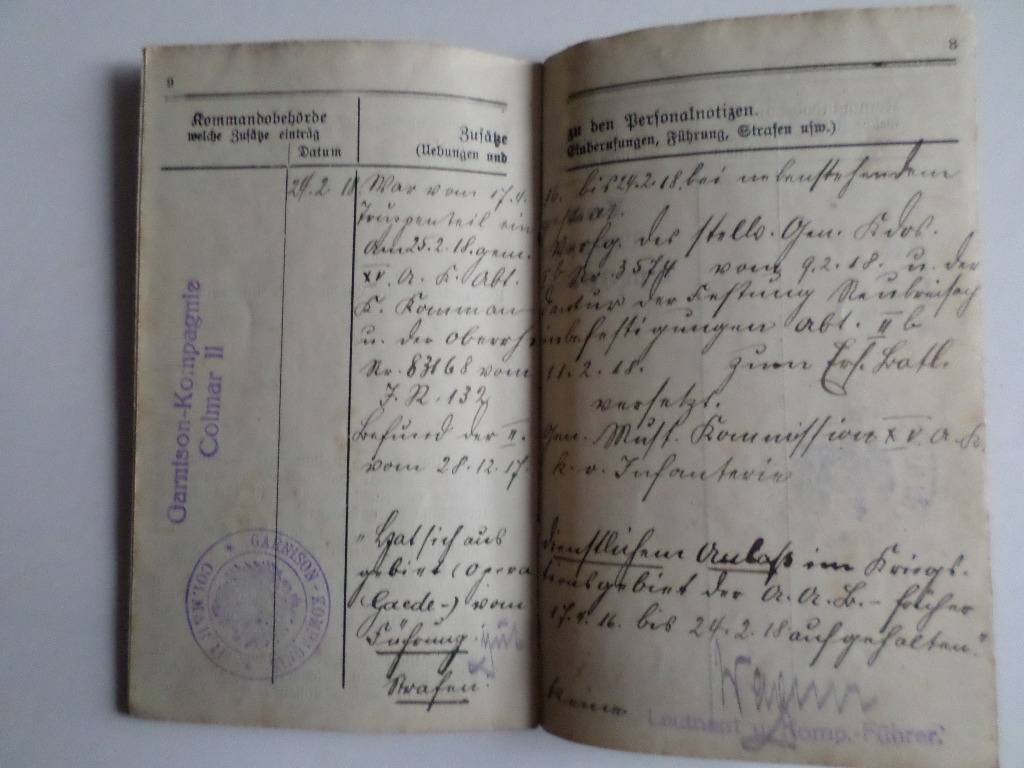 9
8
Kommandobehörde
welche Zusätze einträg
Datum
Zusätze
(Uebungen und
zu den Personalnotizen.
Einberufungen, Führung, Strafen usw.)
24.2.18
War vom 17.4. 16. bis 24.2.18 bei nebenstehendem
Truppenteil
Am 25.2.18. gem. Verfg. des stellv. Gen. Kdos.
XV. A. K. Abt. vom 9.2.18. u. der
K. Komman der Festung Neubreisach
u. der Oberrh befestigungen Abt. II b
Nr. 83168 vom 11.2.18. zum Ers. Batl.
J. R. 132 versetzt.
Befund der II. Gen. Must. Kommission XV. A. K.
vom 28.12.17. k. v. Infanterie
"Hat sich aus dienstlichem Anlaß im Kriegs-
gebiet (Opera tionsgebiet der A. A. B. - früher
Gaede-) vom 17.4.16. bis 24.2.18 aufgehalten."
Führung: gut
Strafen: keine
Wagner
Leutnant u. Komp.-Führer.
Garnison-Kompagnie
Colmar II
GARNISON-KOMPAGNIE * COLMAR II *